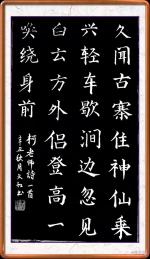 久闻古寨住神仙乘
兴轻车歇涧边忽见
白云方外侣登高一
唤绕身前
柯老师诗一首
辛丑秋月文和书